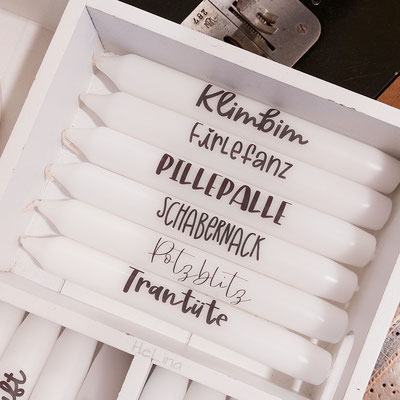 Klimbim
Firlefanz
PILLEPALLE
SCHABERNACK
Potzblitz
Trantüte
HeLina